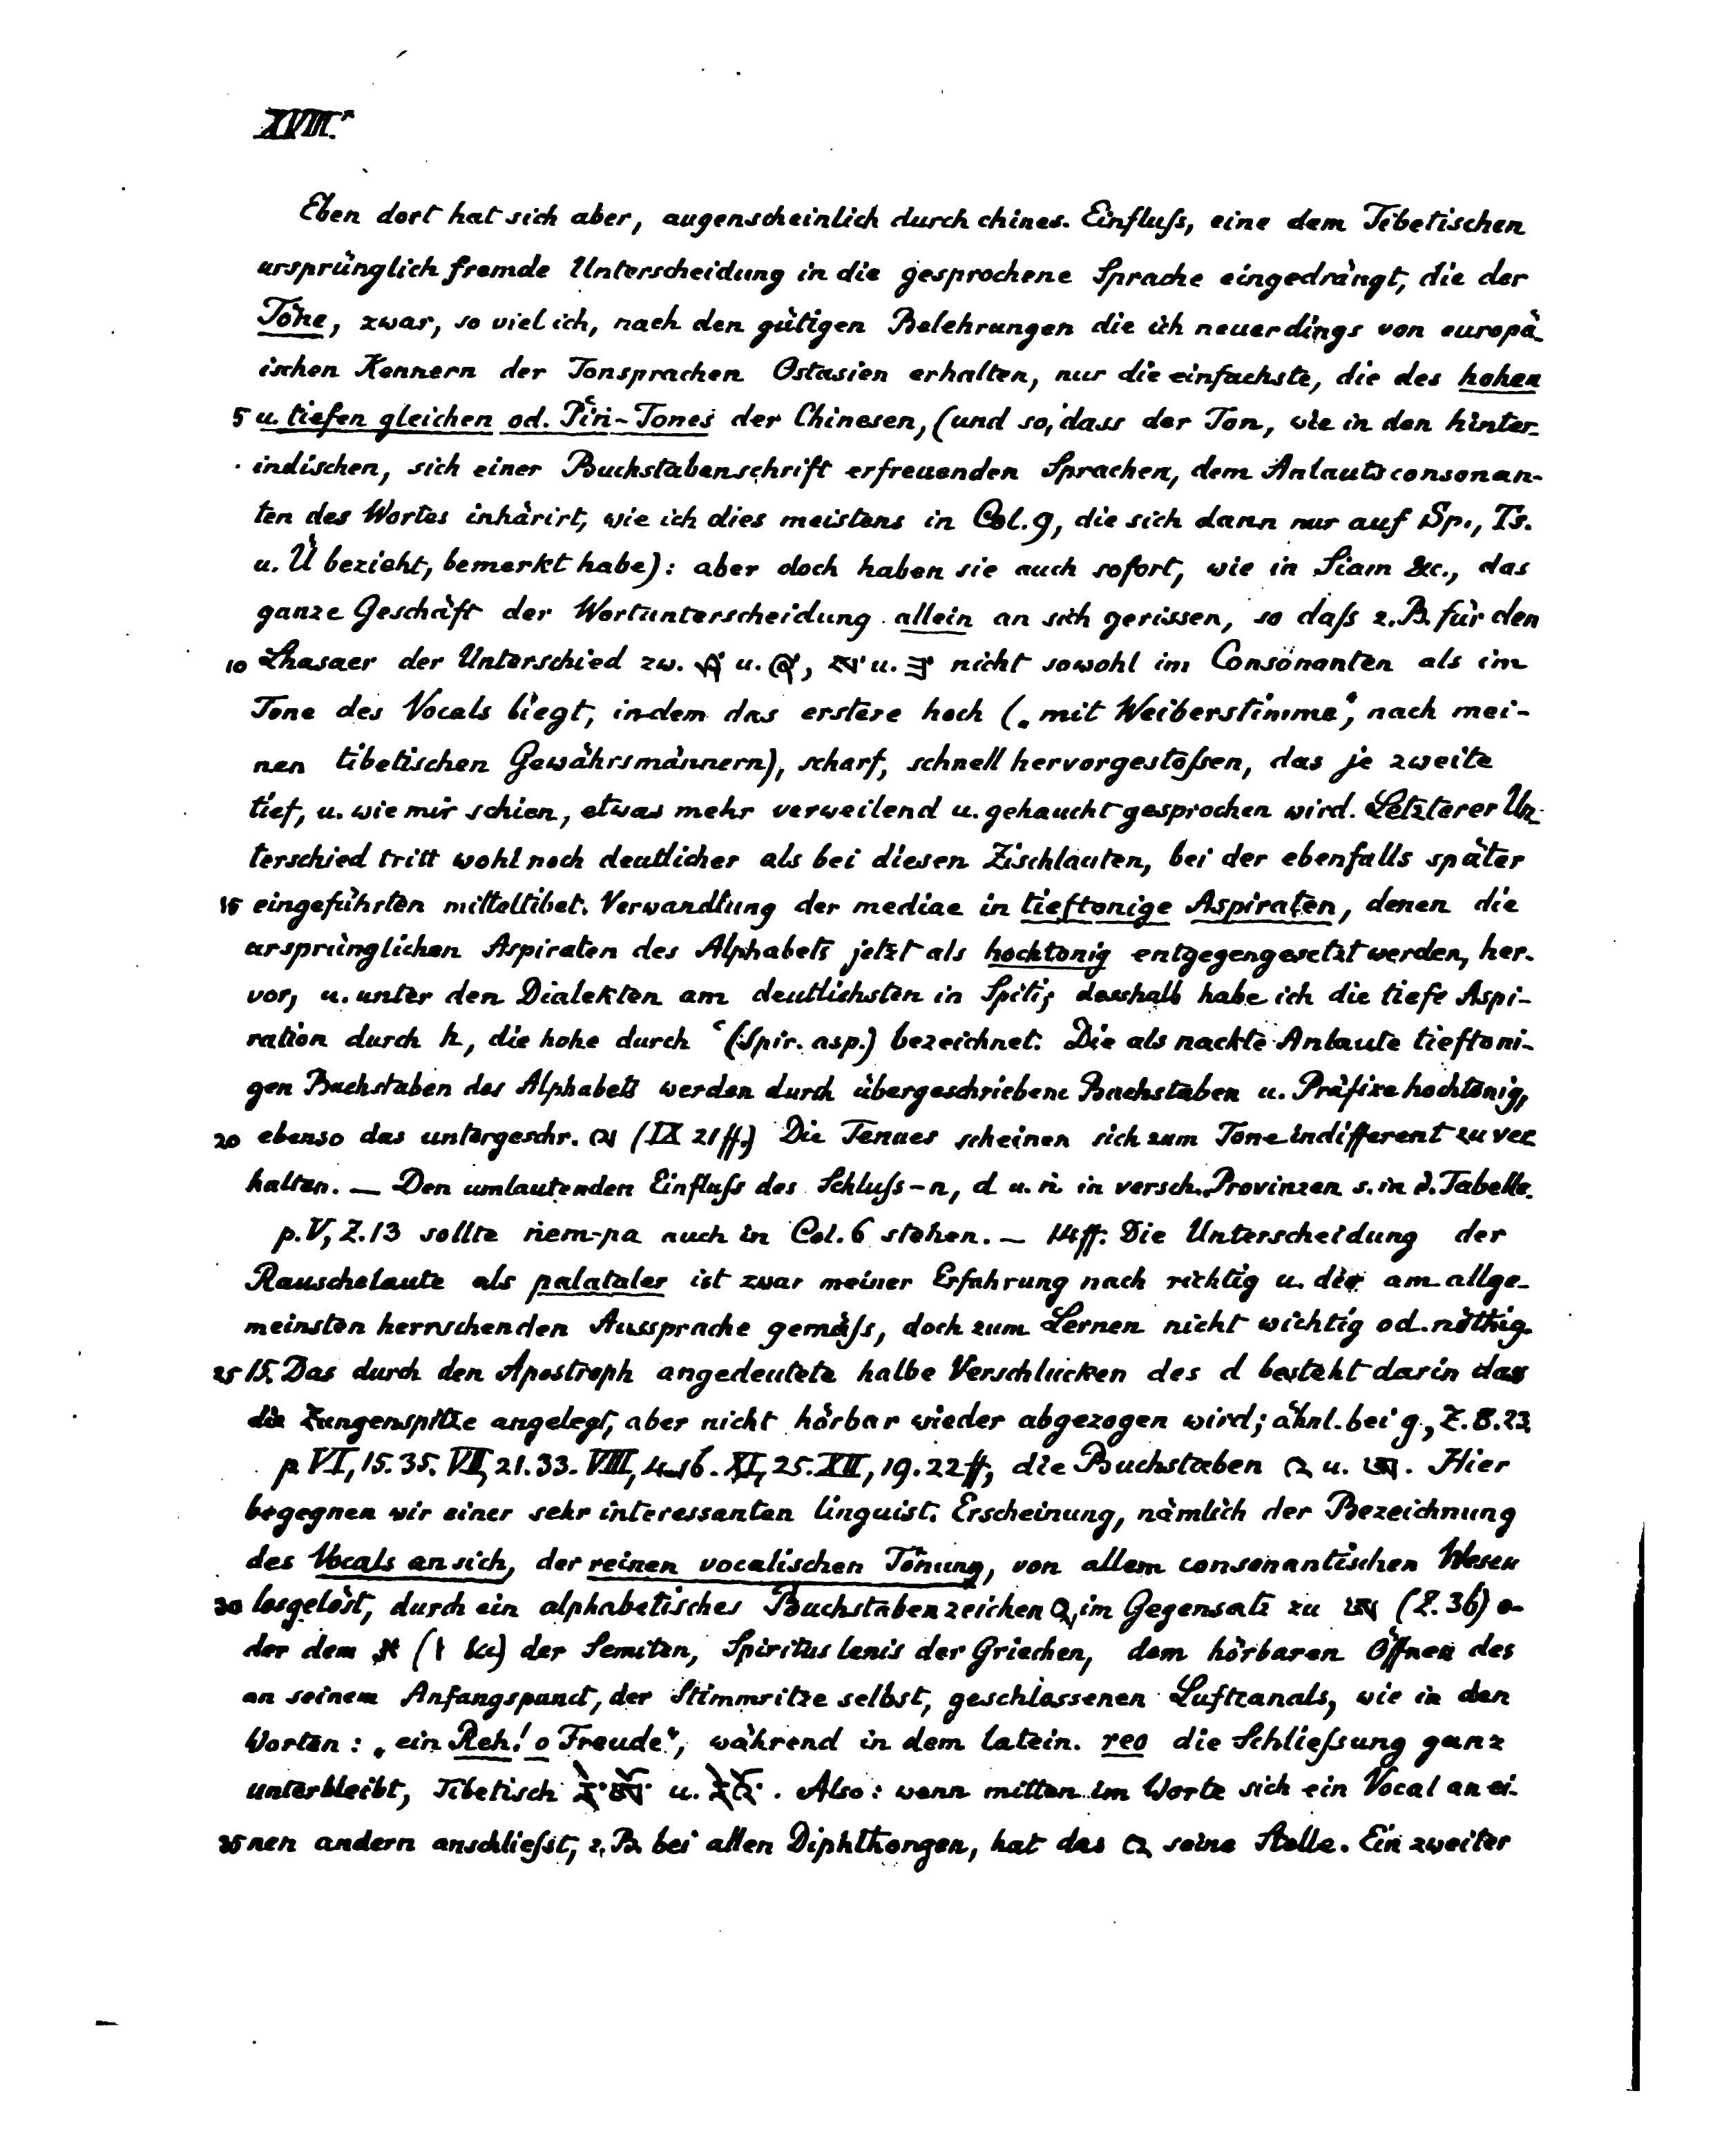 XVIII.
Eben dort hat sich aber, augenscheinlich durch chines. Einfluſs, eine dem Tibetischen
ursprünglich fremde Unterscheidung in die gesprochene Sprache eingedrängt, die der
Töne, zwar, so viel ich, nach den gütigen Belehrungen die ich neuerdings von europä-
ischen Kennern der Tonsprachen Ostasien erhalten, nur die einfachste, die des hohen
5 u. tiefen gleichen od. P‘iṅ-Tones der Chinesen, (und so, dass der Ton, wie in den hinter-
indischen, sich einer Buchstabenschrift erfreuenden Sprachen, dem Anlautsconsonan-
ten des Wortes inhärirt, wie ich dies meistens in Col. 9, die sich dann nur auf Sp., Ts.
u. Ü bezieht, bemerkt habe): aber doch haben sie auch sofort, wie in Siam &c., das
ganze Geschäft der Wortunterscheidung allein an sich gerissen, so daſs z. B. für den
10 Lhasaer der Unterschied zw. ཤ་ u. ཞ་, ས་ u. ཟ་ nicht sowohl im Consonanten als im
Tone des Vocals liegt, indem das erstere hoch („mit Weiberstimme“, nach mei-
nen tibetischen Gewährsmännern), scharf, schnell hervorgestoſsen, das je zweite
tief, u. wie mir schien, etwas mehr verweilend u. gehaucht gesprochen wird. Letzterer Un-
terschied tritt wohl noch deutlicher als bei diesen Zischlauten, bei der ebenfalls später
15 eingeführten mitteltibet. Verwandlung der mediae in tieftonige Aspiraten, denen die
ursprünglichen Aspiraten des Alphabets jetzt als hochtonig entgegengesetzt werden, her-
vor, u. unter den Dialekten am deutlichsten in Spiti; desshalb habe ich die tiefe Aspi-
ration durch h, die hohe durch ‘ (Spir. asp.) bezeichnet. Die als nackte Anlaute tieftoni-
gen Buchstaben des Alphabets werden durch übergeschriebene Buchstaben u. Präfixe hochtönig,
20 ebenso das untergeschr. ལ (IX 21 ff.) Die Tenues scheinen sich zum Tone indifferent zu ver-
halten. — Den umlautenden Einfluſs des Schluſs-n, d u. ṅ in versch. Provinzen s. in d. Tabelle.
p. V, Z. 13 sollte ṅem-pa auch in Col. 6 stehen. — 14 ff. Die Unterscheidung der
Rauschelaute als palataler ist zwar meiner Erfahrung nach richtig u. der am allge-
meinsten herrschenden Aussprache gemäſs, doch zum Lernen nicht wichtig od. nöthig.
25 15. Das durch den Apostroph angedeutete halbe Verschlucken des d besteht darin das
die Zungenspitze angelegt, aber nicht hörbar wieder abgezogen wird; ähnl. bei g, Z. 8. 23.
p. VI, 15. 35. VII, 21. 33. VIII, 4-16. XI, 25. XII, 19. 22 ff, die Buchstaben འ u. ཨ. Hier
begegnen wir einer sehr interessanten linguist. Erscheinung, nämlich der Bezeichnung
des Vocals an sich, der reinen vocalischen Tönung, von allem consonantischen Wesen
30 losgelöst, durch ein alphabetisches Buchstabenzeichen འ, im Gegensatz zu ཨ (Z. 36) o-
der dem א (ا &c) der Semiten, Spiritus lenis der Griechen, dem hörbaren Öffnen des
an seinem Anfangspunct, der Stimmritze selbst, geschlossenen Luftcanals, wie in den
Worten: „ein Reh! o Freude“, während in dem latein. reo die Schlieſsung ganz
unterbleibt, Tibetisch རེ་ཨོ་ u. རེའོ་. Also: wenn mitten im Worte sich ein Vocal an ei-
35 nen andern anschlieſst, z. B. bei allen Diphthongen, hat das འ seine Stelle. Ein zweiter